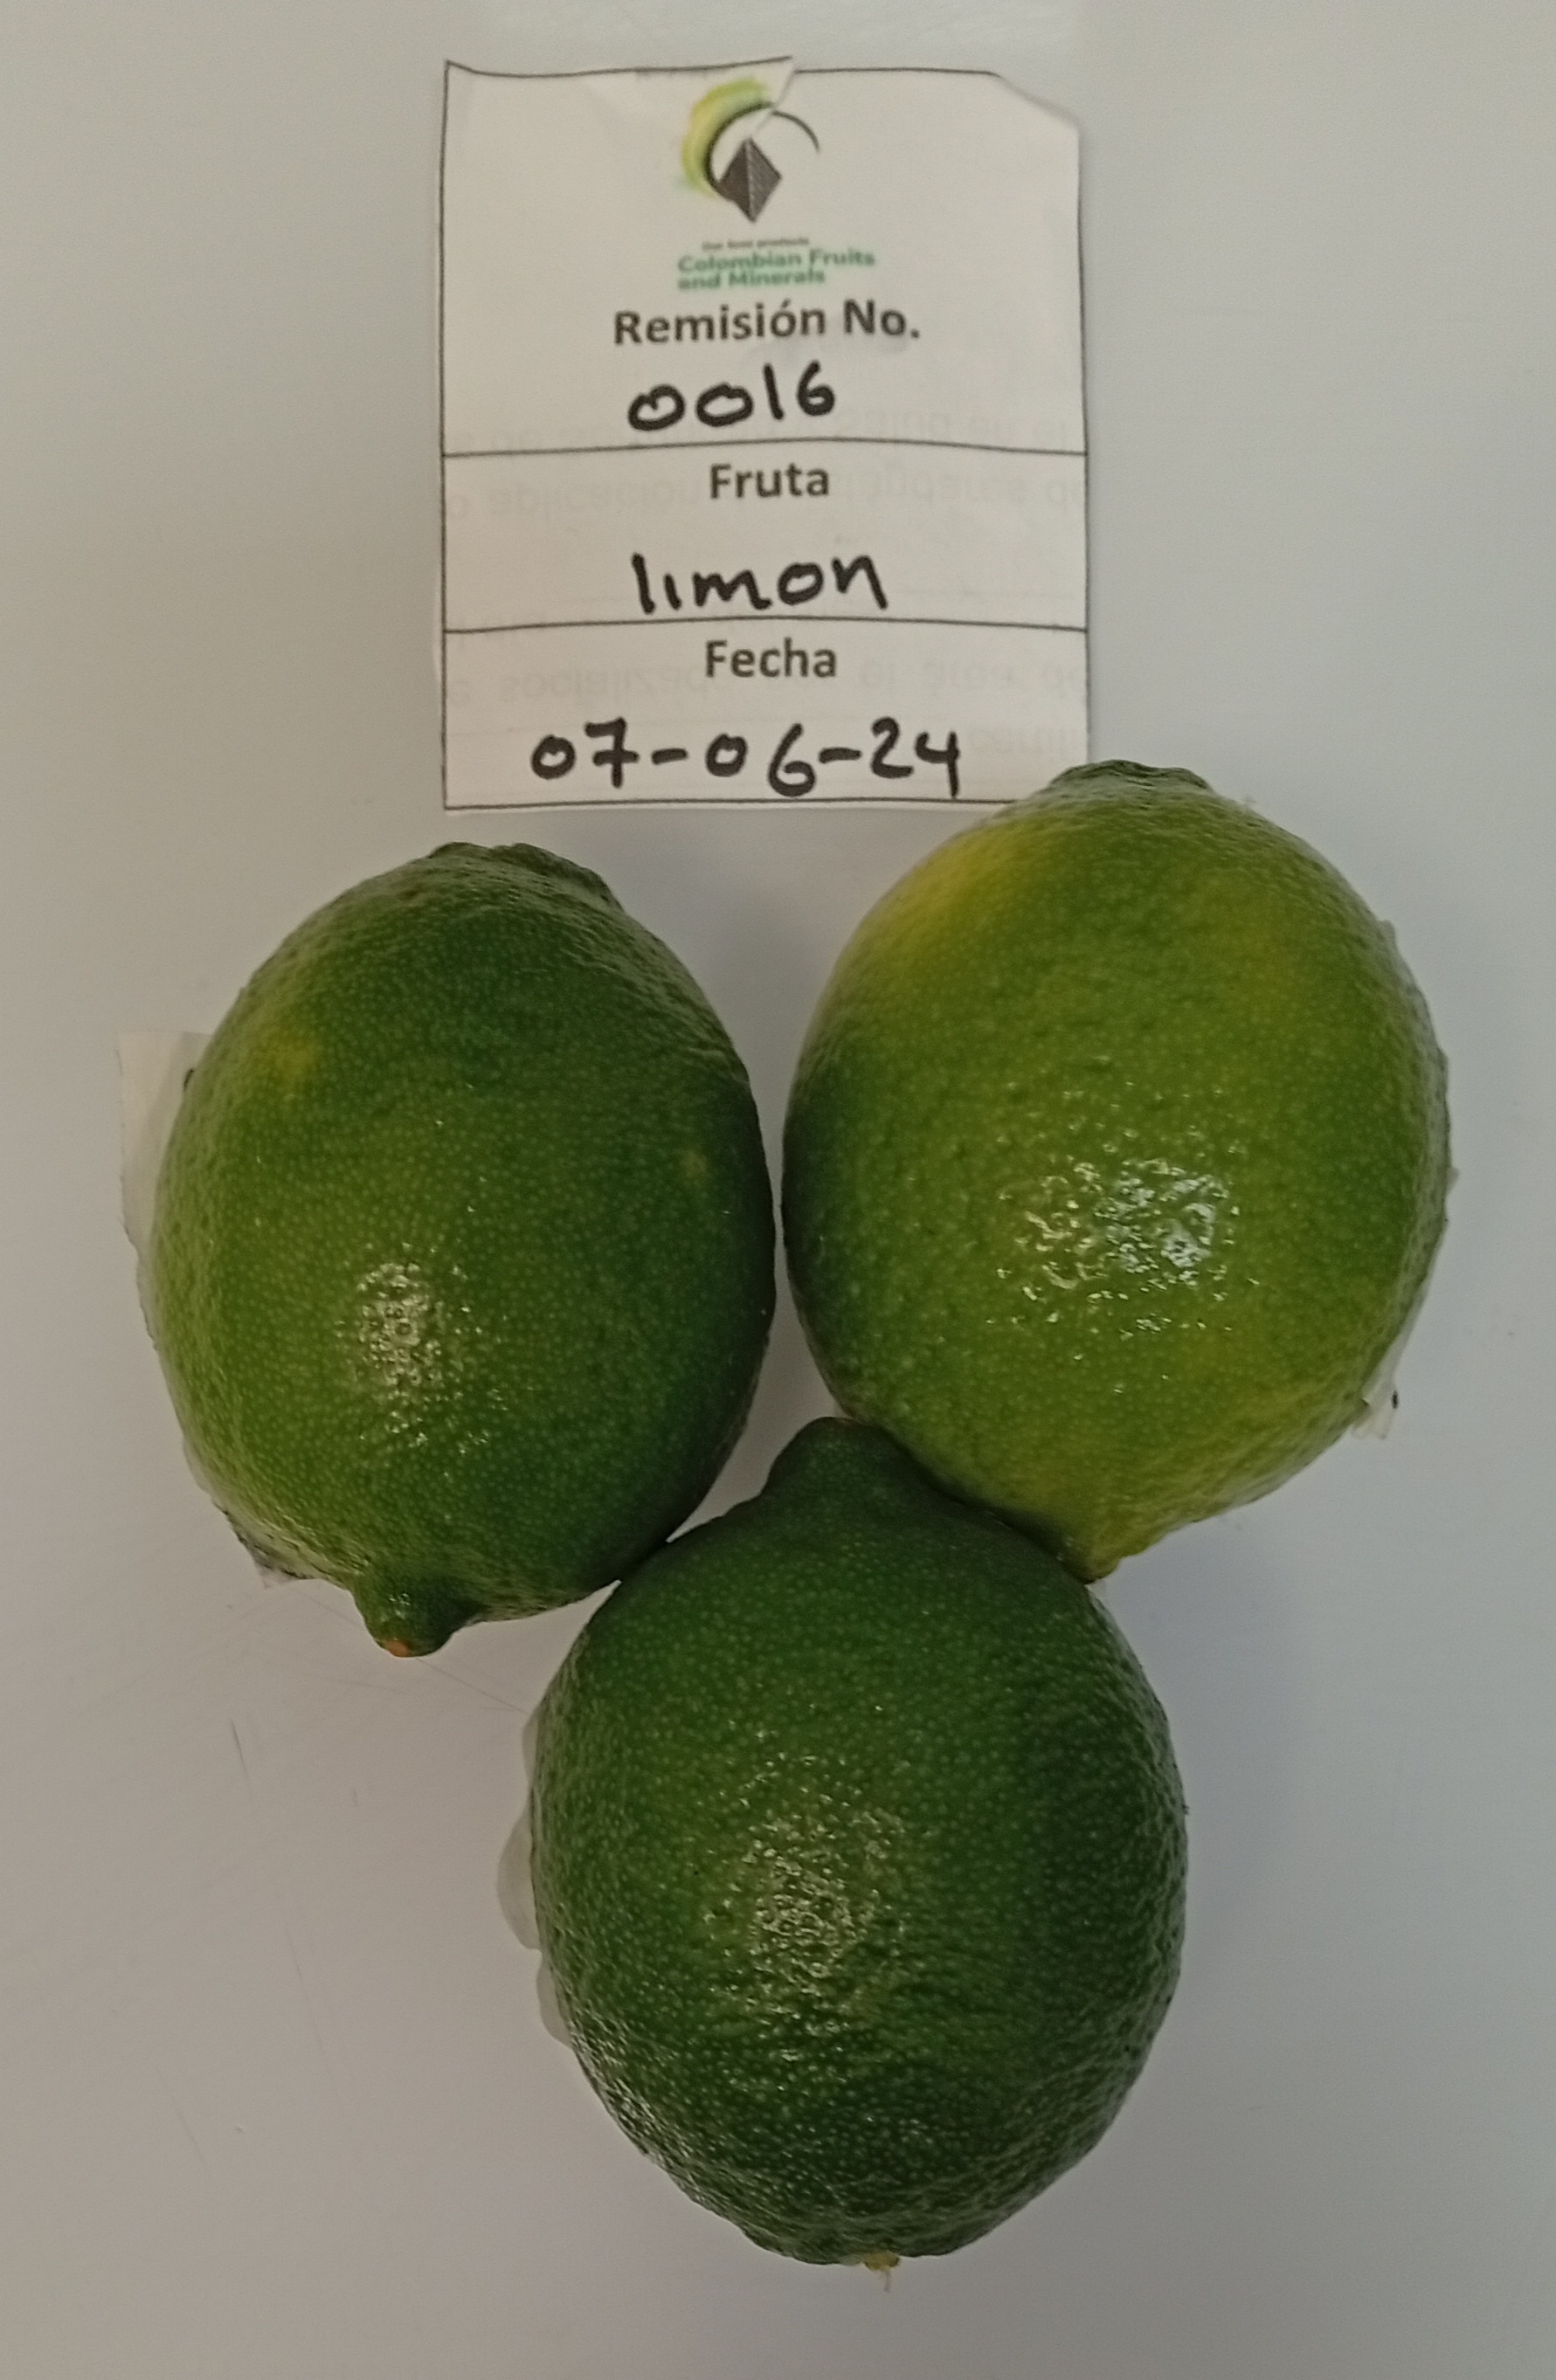 Our best products
Colombian Fruits
and Minerals
Remisión No.
0016
Fruta
limon
Fecha
07-06-24